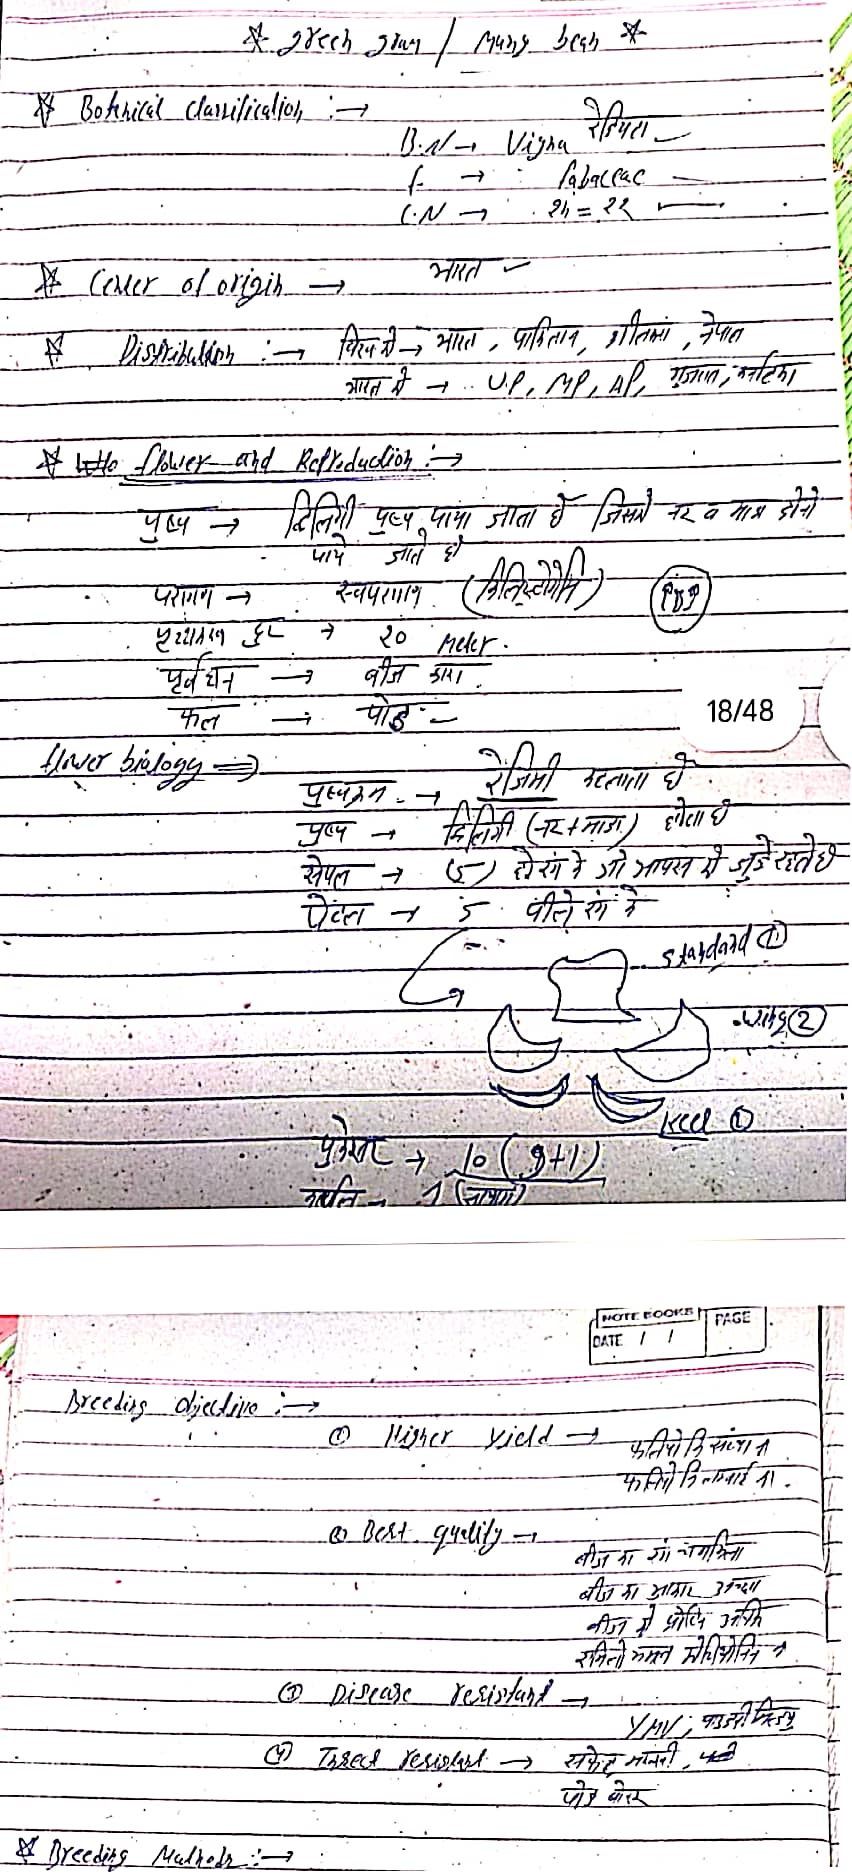 ☆ Green gram / Mung bean ☆
☆ Botanical classification :→
B.N → Vigna रेडियटा
f. → Fabaceae
C.N → 2n = 22
☆ Center of origin → भारत
☆ Distribution :→ विश्व मे → भारत, पाकितान, श्रीलंका, नेपाल
भारत मे → U.P, MP, AP, गुजरात, कर्नाटका
☆ flower and Reproduction :→
पुष्प → द्विलिंगी पुष्प पाया जाता है जिसमे नर व मादा दोनो
पाये जाते है
परागण → स्वपरागण (क्लिस्टोगेमी)
पृथ्थकरण दुर → 20 Meter.
पूर्वधन → बीज द्वारा
फल → पोड
18/48
flower biology ⇒
पुष्पक्रम → रेजिमी कहलाता है
पुष्प → द्विलिंगी (नर + मादा) होता है
सेपल → (5) हरे रंग के जो आपस मे जुडे रहते है
पेटल → 5 पीले रंग के
Standard ①
wing ②
Keel ①
पुंकेसर → 10 (9+1)
1
NOTE BOOKS
DATE / / PAGE
Breeding objective :→
① Higher yield → फलियो कि संख्या
फलियो कि लम्बाई
② Best quality →
बीज का रंग चमकिला
बीज का आकार अच्छा
बीज मे प्रोटीन अधिक
③ Disease resistant →
YMV, पाउडरी मिल्ड्यु
④ Insect resistant → सफेद मक्खी,
पोड बोरर
☆ Breeding Methods :→